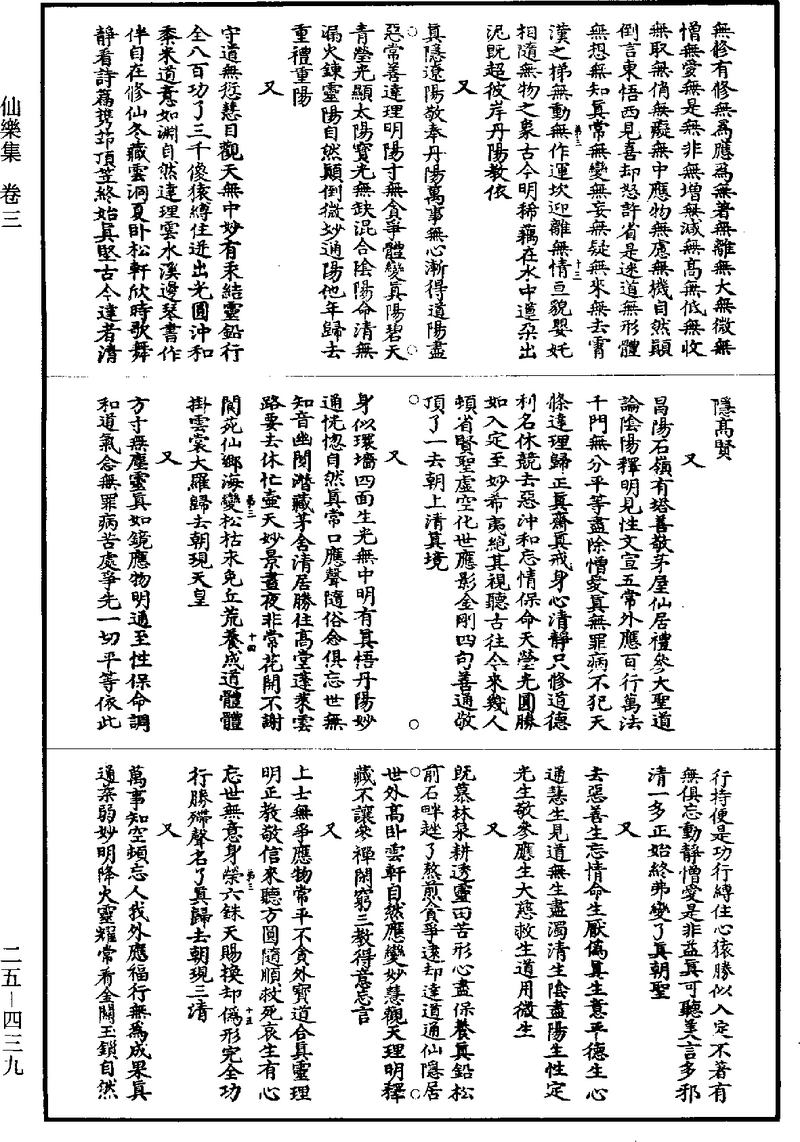 無修有修無為應為無著無離無大無微無
憎無愛無是無非無增無減無高無低無收
無取無俏無癡無中應物無慮無機自然顛
倒言東悟西見喜却怒許省是迷道無形體
無想無知真常無變無妄無疑無來無去霄
第三
十三
漢之梯無動無作運坎迎離無情亘貌嬰姹
相隨無物之象古今明稀藕在水中蓮朶出
泥既超彼岸丹陽教依
又
真隱遼陽敬奉丹陽萬事無心漸得道陽盡
惡常善達理明陽寸無貪爭體變真陽碧天
青瑩光顯太陽寶光無缺混合陰陽命清無
漏火鍊靈陽自然顛倒微妙通陽他年歸去
重禮重陽
又
守道無愆慧目觀天無中妙有朱結靈鉛行
全八百功了三千儍猿縛住迸出光圓沖和
黍米道意如淵自然達理雲水溪邊琴書作
伴自在修仙冬藏雲洞夏卧松軒欣時歌舞
靜看詩篇携筇頂笠終始真堅古今達者清
隱高賢
又
昌陽石嶺有塔善敬茅屋仙居禮參大聖道
論陰陽釋明見性文宣五常外應百行萬法
千門無分平等盡除憎愛真無罪病不犯天
條達理歸正真齋真戒身心清靜只修道德
利名休競去惡沖和忘情保命天瑩光圓勝
如入定至妙希夷絶其視聽古往今來幾人
頓省賢聖虛空化世應影金剛四句善通敬
頂了一去朝上清真境
又
身似環墻四面生光無中明有真悟丹陽妙
通恍惚自然真常口應聲隨俗念俱忘世無
知音幽閑潛藏茅舍清居勝住高堂蓬萊雲
路要去休忙壺天妙景晝夜非常花開不謝
第三
十四
閬苑仙鄉海變松枯來免丘荒養成道體體
掛雲裳大羅歸去朝現天皇
又
方寸無塵靈真如鏡應物明通至性保命調
和道氣念無罪病苦處爭先一切平等依此
行持便是功行縛住心猿勝似入定不著有
無俱忘動靜憎愛是非益真可聽美言多邪
清一多正始終弗變了真朝聖
又
去惡善生忘情命生厭僞真生意平德生心
通慧生見道無生盡濁清生陰盡陽生性定
光生敬參應生大慈救生道用微生
又
既慕林泉耕透靈田苦形心盡保養真鉛松
前石畔趓了熬煎貪爭遠却達道通仙隱居
世外高卧雲軒自然應變妙慧觀天理明釋
藏不讓參禪閑窮三教得意忘言
又
上士無爭應物常平不貪外寶道合真靈理
明正教敬信來聽方圓隨順救死哀生有心
第三
十五
忘世無意身榮六銖天賜換却僞形完全功
行勝殢聲名了真歸去朝現三清
又
萬事知空頓忘人我外應福行無為成果真
通柔弱妙明降火靈耀常看金關玉鎖自然
仙樂集 卷三
二五—四三九